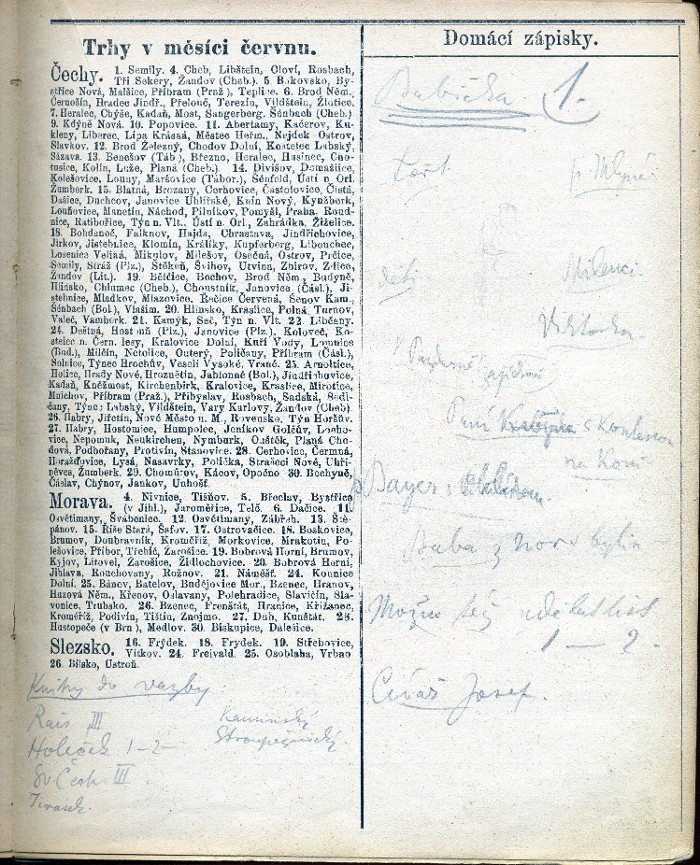 Trhy v měsíci červnu.
Čechy. 1. Semily. 4. Cheb, Libštein, Oloví, Rosbach,
Tři Sekery, Žandov (Cheb.) 5. Bukovsko, By-
střice Nová, Malšice, Příbram (Praž.), Teplice. 6. Brod Něm.,
Černošín, Hradec Jindř., Přelouč, Terezín, Vildštein, Žlutice.
7. Heralec, Chýše, Kadaň, Most, Sangerberg, Šénbach (Cheb.)
9. Kdyně Nová. 10. Popovice. 11. Abertamy, Kačerov, Ku-
kleny, Liberec, Lípa Krásná, Městec Heřm., Nejdek, Ostrov,
Slavkov. 12. Brod Železný, Chodov Dolní, Kostelec Labský,
Sázava. 13. Benešov (Táb.), Březno, Heralec, Husinec, Cho-
tusice, Kolín, Luže, Planá (Cheb.). 14. Divišov, Domažlice,
Kolešovice, Louny, Maršovice (Tábor.), Šénfeld, Ústí n. Orl.
Žumberk. 15. Blatná, Brozany, Cerhovice, Častolovice, Čistá,
Dašice, Duchcov, Janovice Uhlířské, Knín Nový, Kynžberk,
Louňovice, Manetín, Náchod, Pilníkov, Pomyšl, Praha, Roud-
nice, Ratibořice, Týn n. Vlt., Ústí n. Orl., Zahrádka, Žiželice.
18. Bohdaneč, Falknov, Hajda, Chrastava, Jindřichovice,
Jirkov, Jistebnice, Klomín, Králíky, Kupferberg, Libouchec,
Losenice Veliká, Mikulov, Milešov, Osečná, Ostrov, Prčice,
Semily, Stráž (Plz.), Stěkeň, Švihov, Útvina, Zbirov, Zdice,
Žandov (Lit.). 19. Bělčice, Bochov, Brod Něm., Budyně,
Hlinsko, Chlumec (Cheb.), Choustník, Janovice (Čásl.), Ji-
stebnice, Mladkov, Mlazovice, Račice Červená, Šenov Kam.,
Šénbach (Bol.), Vlašim. 20. Hlinsko, Kraslice, Polná, Turnov,
Valeč, Vamberk. 21. Kamýk, Seč, Týn n. Vlt. 22. Libčany.
24. Deštná, Hostouň (Plz.), Janovice (Plz.), Koloveč, Ko-
stelec n. Čern. lesy, Kralovice Dolní, Kuří Vody, Lomnice
(Bud.), Milčín, Netolice, Outerý, Poličany, Příbram (Čásl.),
Solnice, Týnec Hrochův, Veselí Vysoké, Vrané. 25. Arnoltice,
Holice, Hrady Nové, Hroznětín, Jablonné (Bol.), Jindřichovice,
Kadaň, Kněžmost, Kirchenbirk, Kralovice, Kraslice, Mirotice,
Mnichov, Příbram (Praž.), Přibyslav, Rosbach, Sadská, Sedl-
čany, Týnec Labský, Vildštein, Vary Karlovy, Žandov (Cheb)
26. Habry, Jiřetín, Nové Město n. M., Rovensko, Týn Horšův.
27. Habry, Hostomice, Humpolec, Jeníkov Golčův, Louho-
vice, Nepomuk, Neukirchen, Nymburk, Osäték, Planá Cho-
dová, Podbořany, Protivín, Stanovice. 28. Cerhovice, Čermná,
Horažďovice, Lysá, Nasavrky, Polička, Strašecí Nové, Uhří-
něves, Žumberk. 29. Chomůřov, Kácov, Opočno 30. Bechyně,
Čáslav, Chýnov, Jankov, Unhošť.
Morava. 4. Nivnice, Tišňov. 5. Břeclav, Bystřice
(v Jihl.), Jaroměřice, Telč. 6. Dačice. 11.
Osvětimany, Švábenice. 12. Osvětimany, Zábřeh. 13. Ště-
pánov. 15. Říše Stará, Šafov. 17. Ostrovačice. 18. Boskovice,
Brumov, Doubravník, Kroměříž, Morkovice, Mrakotín, Po-
lešovice, Příbor, Třebíč, Zarošice. 19. Bobrová Horní, Brumov,
Kyjov, Litovel, Žarošice, Židlochovice. 20. Bobrová Horní,
Jihlava, Rouchovany, Rožnov. 21. Náměšť. 24. Kounice
Dolní. 25. Bánov, Batelov, Budějovice Mor., Bzenec, Hranov,
Huzová Něm., Křenov, Oslavany, Polehradice, Slavičín, Sla-
vonice, Trubsko. 26. Bzenec, Frenštát, Hranice, Křižanec,
Kroměříž, Podivín, Tištín, Znojmo. 27. Dub, Kunštát. 28.
Hustopeče (v Brn.), Medlov. 30. Biskupice, Dalešice.
Slezsko. 16. Frýdek. 18. Frydek. 19. Střebovice,
Vítkov. 24. Freivald. 25. Osoblaha, Vrbno
26. Bílsko, Ustroň.
Knihy do vazby
Rais III
Holeček 1–2–
Sv. Čech III
Jirásek.
Kaminský
Stroupežnický.
Domácí zápisky.
Babička. 1.
p. Mlynář
děti
Milenci
Viktorka
Paní s Komtessou
na Koni
Bayer s
Baba z hor s bylin
Možno též udělat list
1 — 2.
Josef.